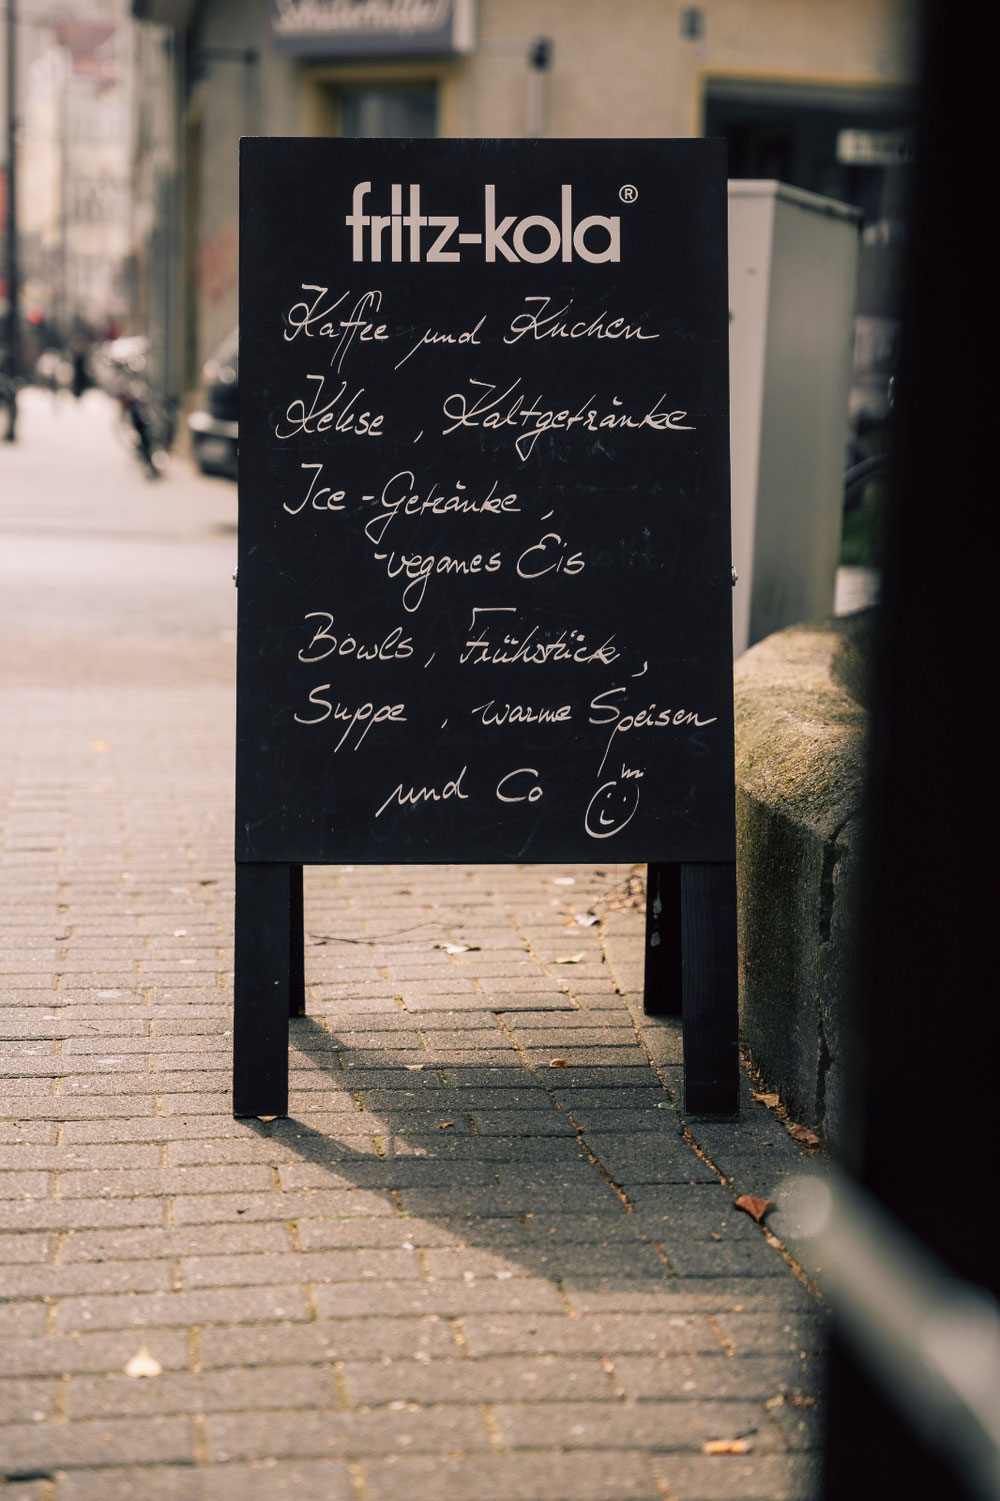 Schülerhilfe!
fritz-kola®
Kaffee und Kuchen
Kekse, Kaltgetränke
Ice-Getränke,
-veganes Eis
Bowls, Frühstück,
Suppe, warme Speisen
und Co